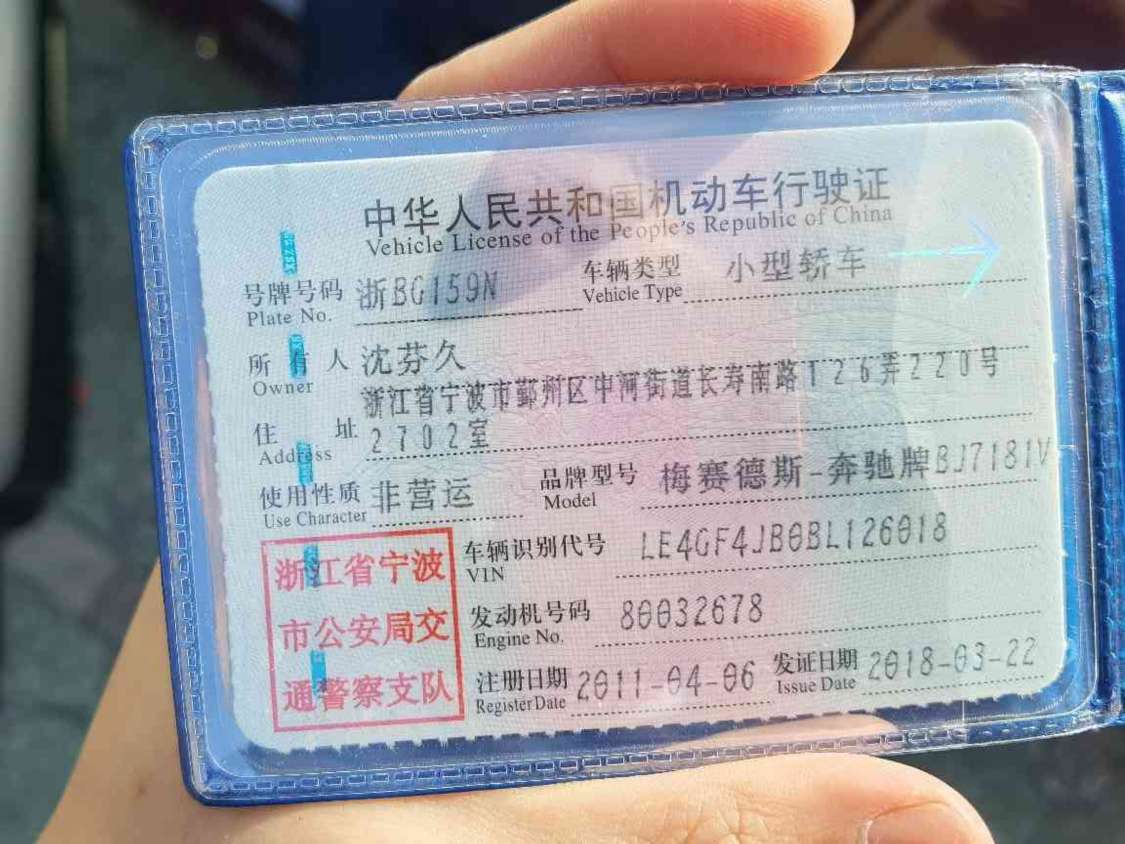 中华人民共和国机动车行驶证
Vehicle License of the People's Republic of China
号牌号码 浙BG159N 车辆类型 小型轿车
Plate No. Vehicle Type
所有人 沈芬久
Owner
住址 浙江省宁波市鄞州区中河街道长寿南路126弄220号
Address 2702室
使用性质 非营运 品牌型号 梅赛德斯-奔驰牌BJ7181V
Use Character Model
浙江省宁波
市公安局交
通警察支队
车辆识别代号 LE4GF4JB0BL126018
VIN
发动机号码 80032678
Engine No.
注册日期 2011-04-06 发证日期 2018-03-22
Register Date Issue Date